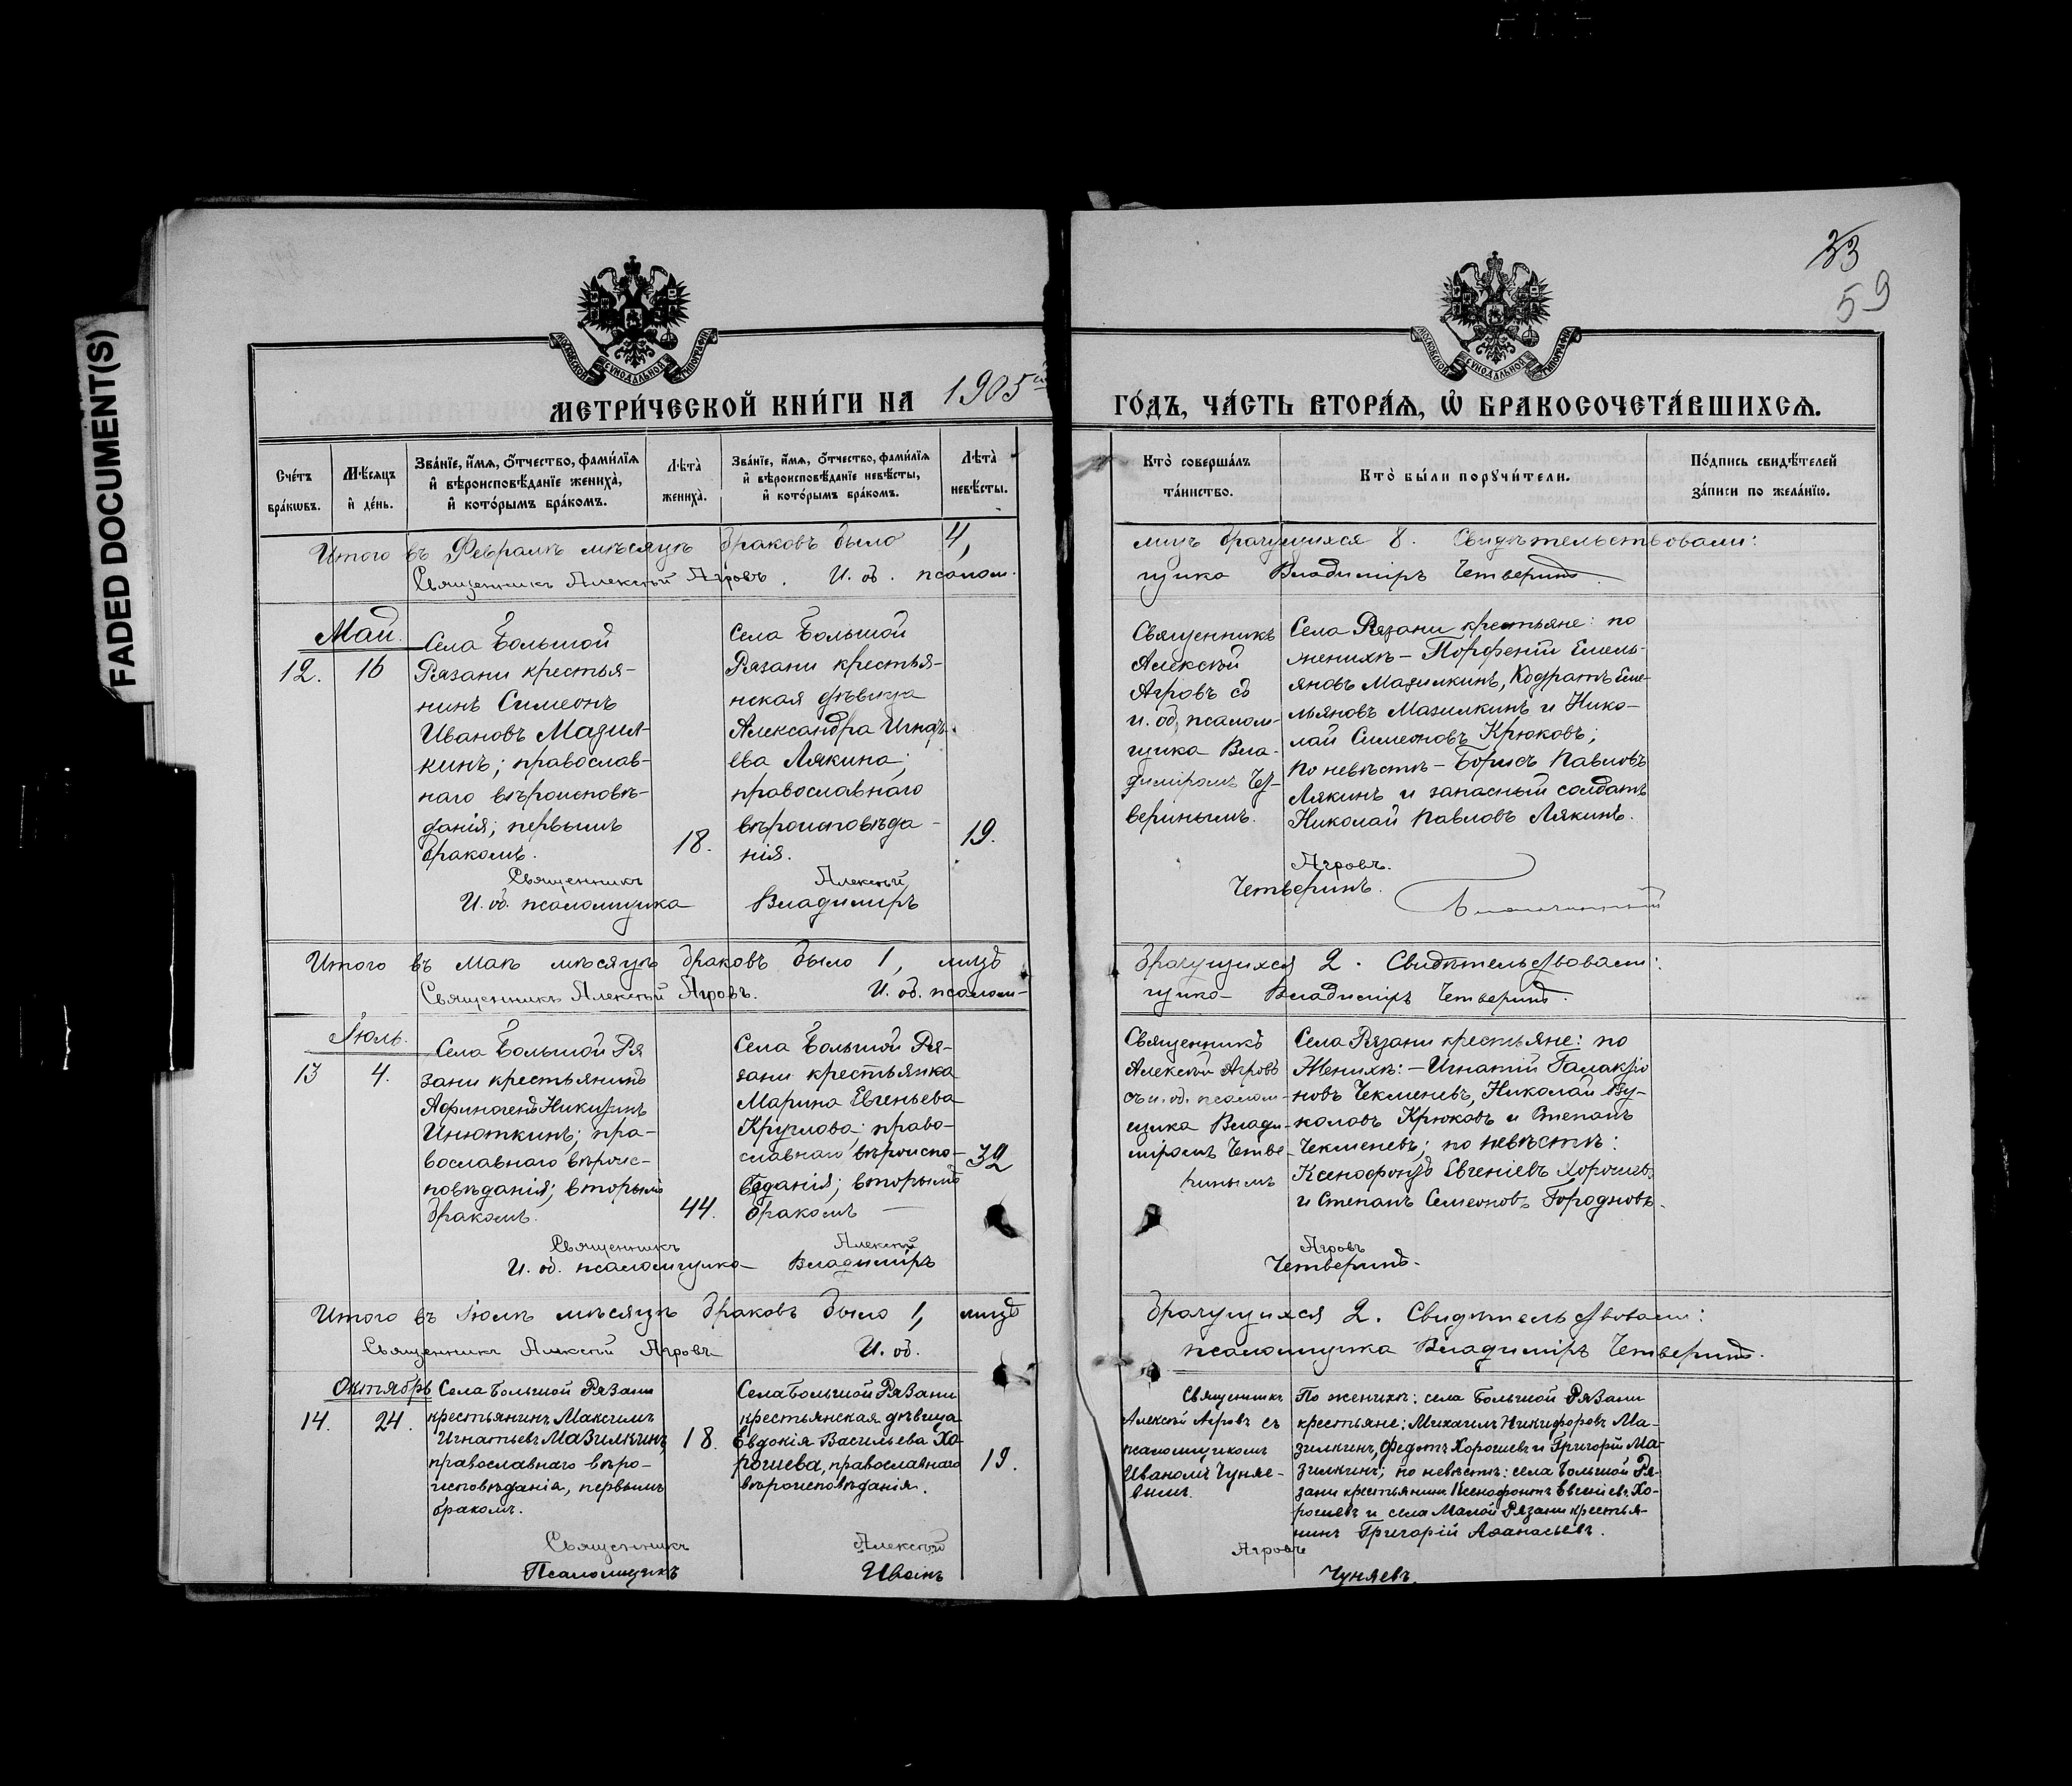 FADED DOCUMENT(S)
33
59
МОСКОВСКОЙ СѴНОДАЛЬНОЙ ТИПОГРАФІИ
МОСКОВСКОЙ СѴНОДАЛЬНОЙ ТИПОГРАФІИ
МЕТРИ́ЧЕСКОЙ КНИ́ГИ НА 1905й
ГО́ДЪ, ЧА́СТЬ ВТОРА́Ѧ, Ѽ БРАКОСОЧЕТА́ВШИХСѦ.
Сче́тъ
бра́кѡвъ.
Мѣ́сяцъ
и҆ де́нь.
Зва́нїе, и҆́мѧ, ѻ҆́тчество, фами́лїѧ
и҆ вѣроисповѣ́данїе жениха̀,
и҆ кото́рымъ бра́комъ.
Лѣта̀
жениха̀.
Зва́нїе, и҆́мѧ, ѻ҆́тчество, фами́лїѧ
и҆ вѣроисповѣ́данїе невѣ́сты,
и҆ кото́рымъ бра́комъ.
Лѣта̀
невѣ́сты.
Кто̀ соверша́лъ
та́инство.
Кто̀ бы́ли порꙋчи́тели.
По́дпись свидѣ́телей
за́писи по жела́нїю.
Итого въ Февралѣ мѣсяцѣ браковъ было 4,
Священникъ Алексѣй Агровъ. И. об. псалом-
лицъ брачущихся 8. Свидѣтельствовали:
щика Владиміръ Четверинъ.
Май.
12. 16
Села Большой
Рязани крестья-
нинъ Симеонъ
Ивановъ Мазил-
кинъ; православ-
наго вѣроисповѣ-
данія; первымъ
бракомъ.
18.
Села Большой
Рязани крестья-
нская дѣвица
Александра Игнать-
ева Лякина;
православнаго
вѣроисповѣда-
нія.
19.
Священникъ
Алексѣй
Агровъ съ
и. об. псалом-
щика Вла-
диміромъ Чет-
веринымъ.
Села Рязани крестьяне: по
женихѣ – Порфений Емель-
яновъ Мазилкинъ, Кодратъ Еме-
льяновъ Мазилкинъ и Нико-
лай Симеоновъ Крюковъ;
по невѣстѣ – Борисъ Павловъ
Лякинъ и запасный солдатъ
Николай Павловъ Лякинъ.
Священникъ Алексѣй Агровъ.
И. об. псаломщика Владиміръ Четверинъ.
Итого въ Маѣ мѣсяцѣ браковъ было 1, лицъ
Священникъ Алексѣй Агровъ. И. об. псалом-
брачущихся 2. Свидѣтельствовали:
щика Владиміръ Четверинъ.
Іюль.
13 4.
Села Большой Ря
зани крестьянинъ
Афиногенъ Никитинъ
Инюткинъ; пра-
вославнаго вѣроис-
повѣданія; вторымъ
бракомъ.
44.
Села Большой Ря-
зани крестьянка
Марина Евгеньева
Круглова; право-
славнаго вѣроиспо-
вѣданія; вторымъ
бракомъ –
32
Священникъ
Алексѣй Агровъ
съ и. об. псалом-
щика Влади-
міромъ Четве-
ринымъ
Села Рязани крестьяне: по
Женихѣ: – Игнатій Галактіо
новъ Чекменевъ, Николай Ву-
коловъ Крюковъ и Степанъ
Чекменевъ; по невѣстѣ:
Ксенофонтъ Евгеніевъ Хорошевъ
и Степанъ Семеоновъ Городновъ.
Священникъ Алексѣй Агровъ
И. об. псаломщика Владиміръ Четверинъ.
Итого въ Іюлѣ мѣсяцѣ браковъ было 1, лицъ
Священникъ Алексѣй Агровъ И. об.
брачущихся 2. Свидѣтельствовали:
псаломщика Владиміръ Четверинъ.
Октябрь
14. 24.
Села Большой Рязани
крестьянинъ Максимъ
Игнатьевъ Мазилкинъ,
православнаго вѣро-
исповѣданія, первымъ
бракомъ.
18.
Села Большой Рязани
крестьянская дѣвица
Евдокія Васильева Хо-
рошева, православнаго
вѣроисповѣданія.
19.
Священникъ
Алексѣй Агровъ съ
псаломщикомъ
Иваномъ Чуняе-
вымъ.
По женихѣ: села Большой Рязани
крестьяне: Михаилъ Никифоровъ Ма-
зилкинъ, Федотъ Хорошевъ и Григорій Ма-
зилкинъ; по невѣстѣ: села Большой Ря-
зани крестьянинъ Ксенофонтъ Евгеніевъ Хо-
рошевъ и села Малой Рязани крестья-
нинъ Григорій Аѳанасьевъ.
Священникъ Алексѣй Агровъ
Псаломщикъ Иванъ Чуняевъ.